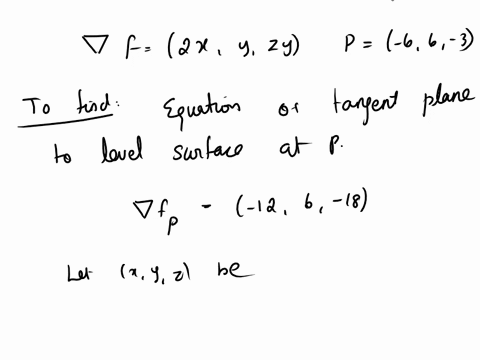 ∇ f = (2x, y, zy) P = (-6, 6, -3)
To find: Equation of tangent plane
to level surface at P.
∇f_p = (-12, 6, -18)
Let (x, y, z) be